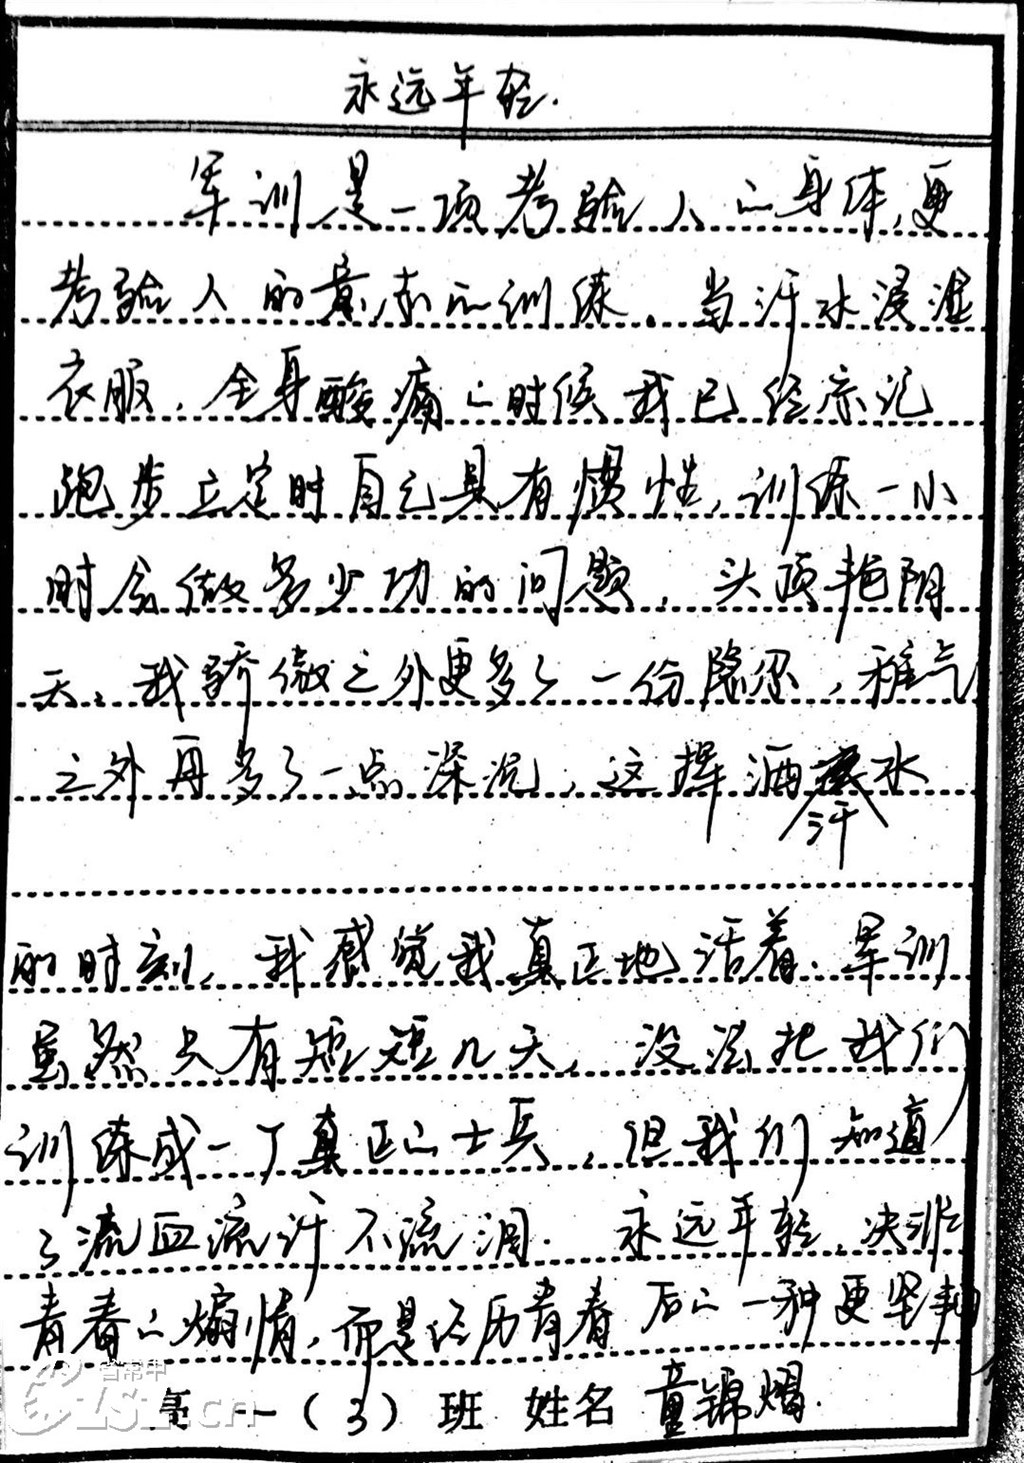 永远年轻.
军训是一项考验人的身体,更
考验人的意志的训练.当汗水浸湿
衣服,全身酸痛的时候我已经忘记
跑步立定时自己具有惯性,训练一小
时会做多少功的问题,头顶艳阴
天,我骄傲之外更多了一份隐忍,稚气
之外再多了一点深沉,这挥洒水
汗
的时刻,我感觉我真正地活着.军训
虽然只有短短几天,没法把我们
训练成一个真正的士兵,但我们知道
了流血流汗不流泪.永远年轻,决非
青春的煽情,而是经历青春后的一种更坚
省常中
CZSZ.cn
高一(3)班 姓名 童锦熠.